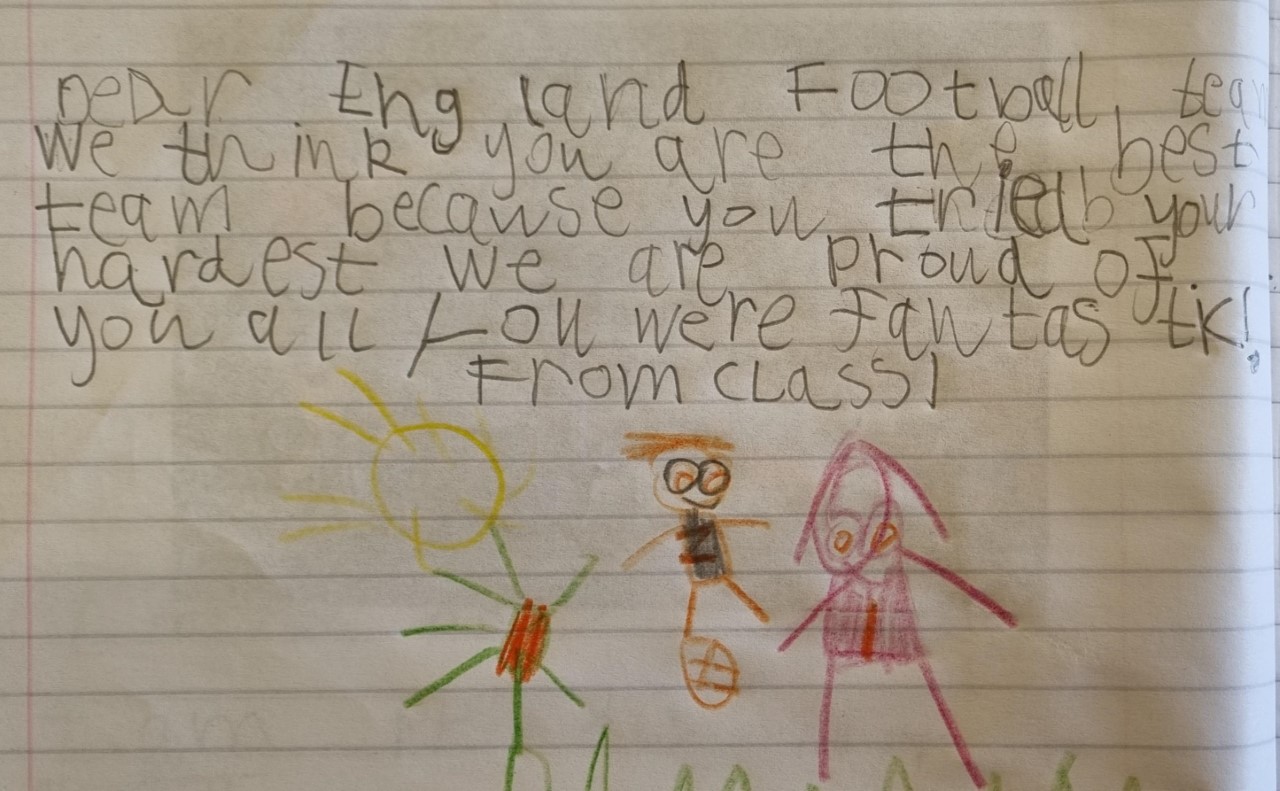 DeDr England Football tea
We think you are the best
team because you triedb your
hardest we are proud of
you all You were fantastik!
From cLass1